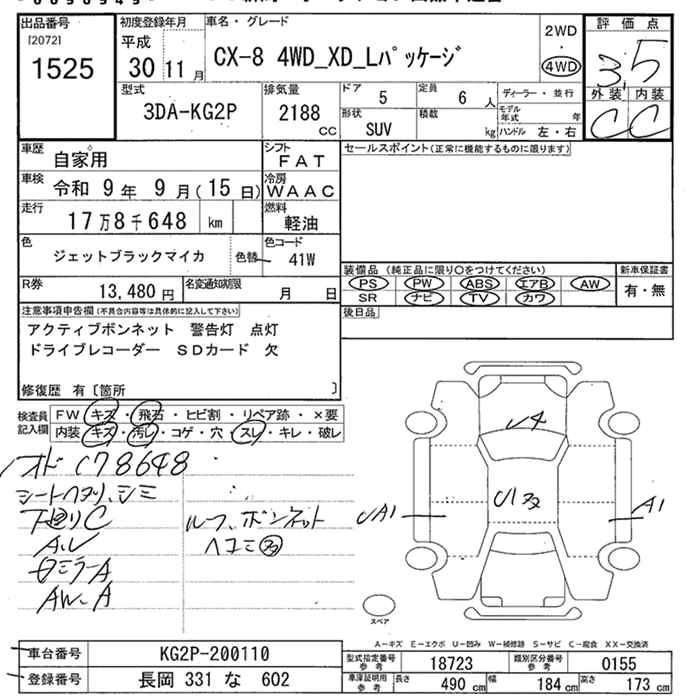 出品番号
[2072]
1525
初度登録年月
平成
30 11 月
車名・グレード
CX-8 4WD_XD_Lパッケージ
2WD
・
4WD
評価点
3.5
外装 内装
C C
型式
3DA-KG2P
排気量
2188
cc
ドア
5
定員
6 人
形状
SUV
積載
kg
ディーラー・並行
モデル年式 年
ハンドル 左・右
車歴
自家用
シフト
FAT
車検
令和 9 年 9 月 ( 15 日)
冷房
WAAC
走行
17万8千648 km
燃料
軽油
色
ジェットブラックマイカ
色替
色コード
41W
R券
13,480 円
名変通知期限
月 日
セールスポイント(正常に機能するものに限ります)
装備品 (純正品に限り○をつけてください)
PS PW ABS エアB AW
SR ナビ TV カワ
新車保証書
有・無
後日品
注意事項申告欄(不具合内容等は具体的に記入して下さい)
アクティブボンネット 警告灯 点灯
ドライブレコーダー SDカード 欠
修復歴 有〔箇所 〕
検査員記入欄
FW キズ・飛石・ヒビ割・リペア跡・×要
内装 キズ・汚レ・コゲ・穴・スレ・キレ・破レ
オド 178648
シートヘタリ、シミ
下廻りC
ルーフ、ボンネット
ヘコミ多
AW A
U4
U1多
UA1
A1
スペア
A−キズ E−エクボ U−凹み W−補修跡 S−サビ C−腐食 XX−交換済
車台番号
KG2P-200110
登録番号
長岡 331 な 602
型式指定番号 参考
18723
類別区分番号 参考
0155
車庫証明用 参考
長さ 490 cm
幅 184 cm
高さ 173 cm